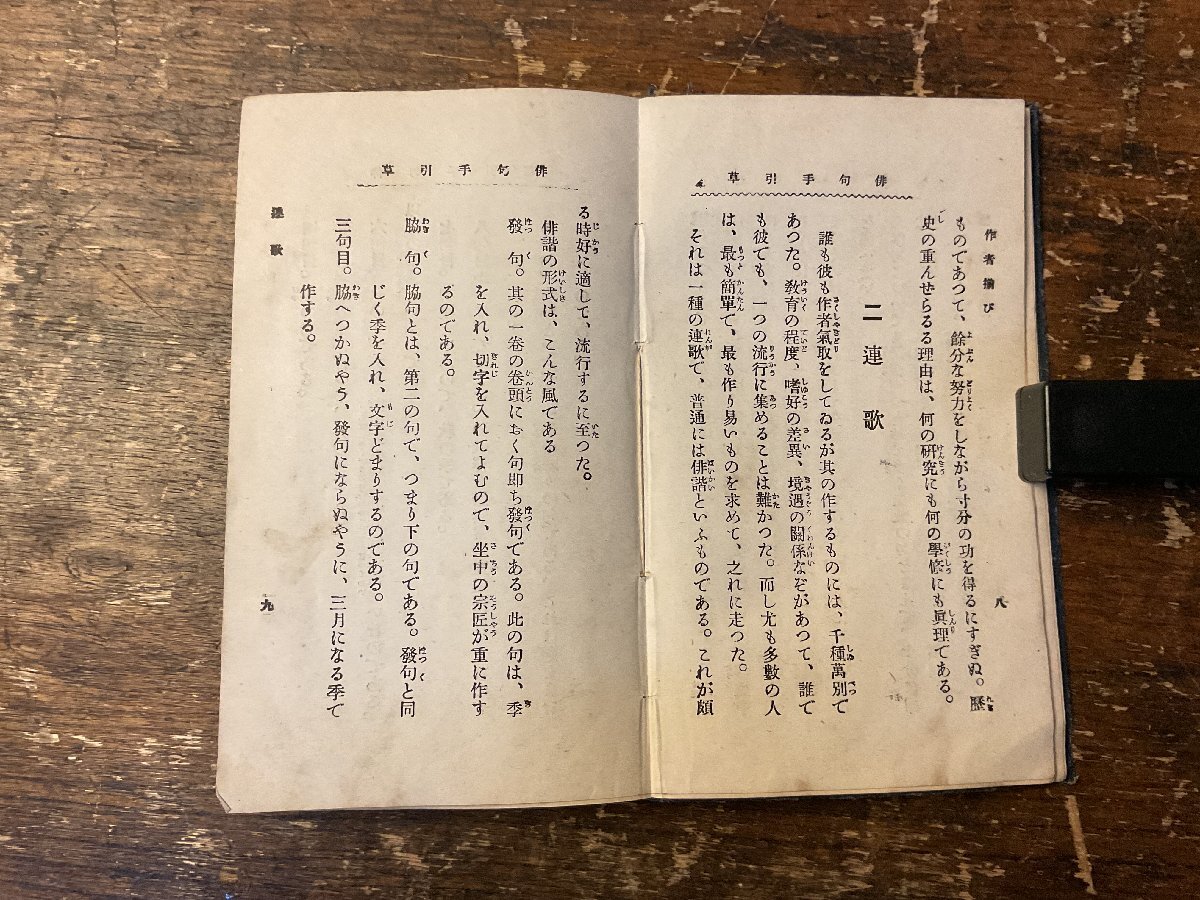 俳句手引草
作者揃び
八
ものであつて、餘分な努力をしながら寸分の功を得るにすぎぬ。歷
史の重んせらるる理由は、何の研究にも何の學修にも眞理である。
二 連歌
誰も彼も作者氣取をしてゐるが其の作するものには、千種萬別で
あつた。敎育の程度、嗜好の差異、境遇の關係なぞがあつて、誰で
も彼でも、一つの流行に集めることは難かつた。而し尤も多數の人
は、最も簡單で、最も作り易いものを求めて、之れに走つた。
それは一種の連歌で、普通には俳諧といふものである。これが頗
俳句手引草
連歌
九
る時好に適して、流行するに至つた。
俳諧の形式は、こんな風である
發句。其の一卷の卷頭におく句卽ち發句である。此の句は、季
を入れ、切字を入れてよむので、坐中の宗匠が重に作す
るのである。
脇句。脇句とは、第二の句で、つまり下の句である。發句と同
じく季を入れ、文字どまりするのである。
三句目。脇へつかぬやう、發句にならぬやうに、三月になる季で
作する。